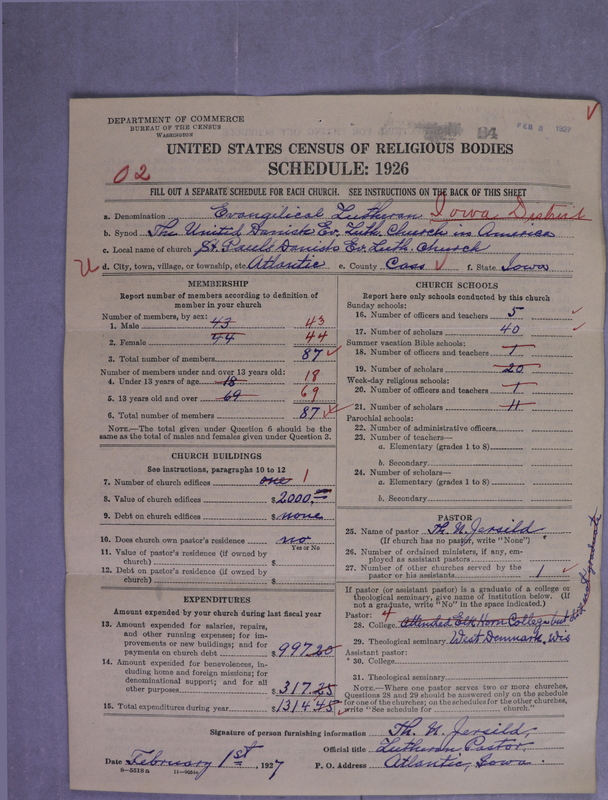 DEPARTMENT OF COMMERCE
BUREAU OF THE CENSUS
WASHINGTON
94
FEB 5 1927
UNITED STATES CENSUS OF RELIGIOUS BODIES
SCHEDULE: 1926
02
FILL OUT A SEPARATE SCHEDULE FOR EACH CHURCH. SEE INSTRUCTIONS ON THE BACK OF THIS SHEET
a. Denomination Evangelical Lutheran Iowa District
b. Synod The United Danish Ev. Luth. Church in America
c. Local name of church St. Pauls Danish Ev. Luth. Church
d. City, town, village, or township, etc. Atlantic e. County Cass f. State Iowa
MEMBERSHIP
Report number of members according to definition of member in your church
Number of members, by sex:
1. Male 43 43
2. Female 44 44
3. Total number of members 87
Number of members under and over 13 years old:
4. Under 13 years of age 18 18
5. 13 years old and over 69 69
6. Total number of members 87
NOTE.—The total given under Question 6 should be the same as the total of males and females given under Question 3.
CHURCH BUILDINGS
See instructions, paragraphs 10 to 12
7. Number of church edifices one 1
8. Value of church edifices $2000.
9. Debt on church edifices $ none
10. Does church own pastor's residence? no
Yes or No
11. Value of pastor's residence (if owned by church) $
12. Debt on pastor's residence (if owned by church) $
EXPENDITURES
Amount expended by your church during last fiscal year
13. Amount expended for salaries, repairs, and other running expenses; for improvements or new buildings; and for payments on church debt $997.20
14. Amount expended for benevolences, including home and foreign missions; for denominational support; and for all other purposes $317.25
15. Total expenditures during year $1314.45
CHURCH SCHOOLS
Report here only schools conducted by this church
Sunday schools:
16. Number of officers and teachers 5
17. Number of scholars 40
Summer vacation Bible schools:
18. Number of officers and teachers 1
19. Number of scholars 20
Week-day religious schools:
20. Number of officers and teachers 1
21. Number of scholars 11
Parochial schools:
22. Number of administrative officers
23. Number of teachers—
a. Elementary (grades 1 to 8)
b. Secondary
24. Number of scholars—
a. Elementary (grades 1 to 8)
b. Secondary
PASTOR
25. Name of pastor Th. N. Jersild
(If church has no pastor, write "None")
26. Number of ordained ministers, if any, employed as assistant pastors
27. Number of other churches served by the pastor or his assistants 1
If pastor (or assistant pastor) is a graduate of a college or theological seminary, give name of institution below. (If not a graduate, write "No" in the space indicated.)
Pastor: 4
28. College Attended Elk Horn College but did not graduate
29. Theological seminary West Denmark, Wis
Assistant pastor:
30. College
31. Theological seminary
NOTE.—Where one pastor serves two or more churches, Questions 28 and 29 should be answered only on the schedule for one of the churches; on the schedules for the other churches, write "See schedule for church."
Signature of person furnishing information Th. N. Jersild,
Official title Lutheran Pastor.
Date February 1st, 1927 P. O. Address Atlantic, Iowa.
8—5518a